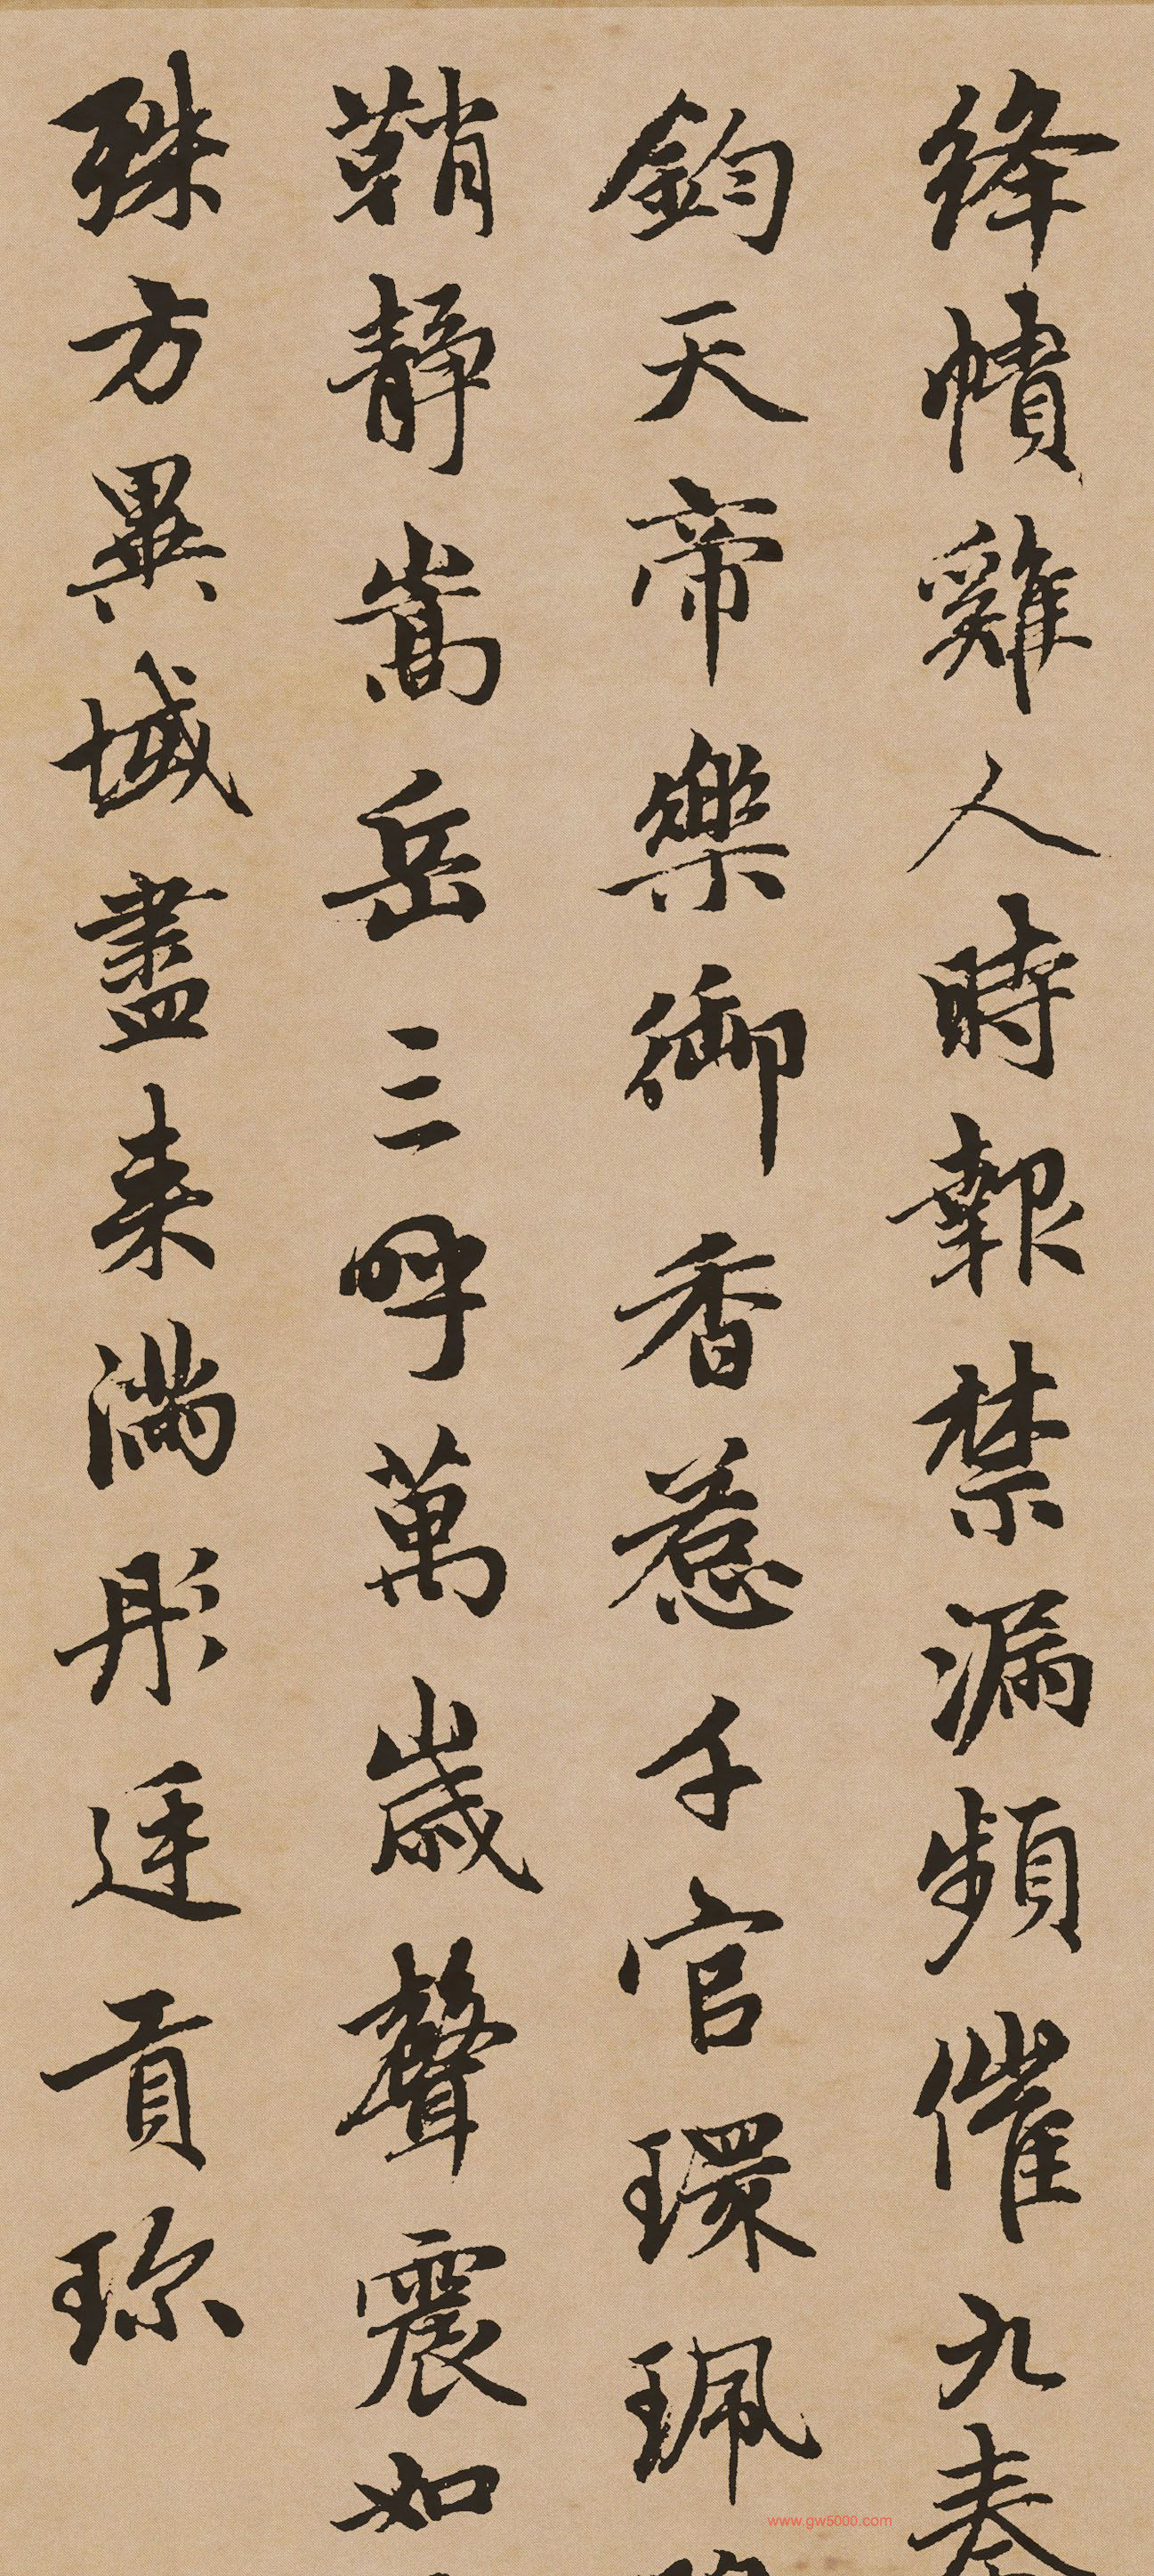 絳幘雞人時報禁漏頻催九奏
鈞天帝樂御香惹千官環珮
鞘靜嵩岳三呼萬歲聲震如
殊方異域盡来滿彤廷貢珎
www.gw5000.com